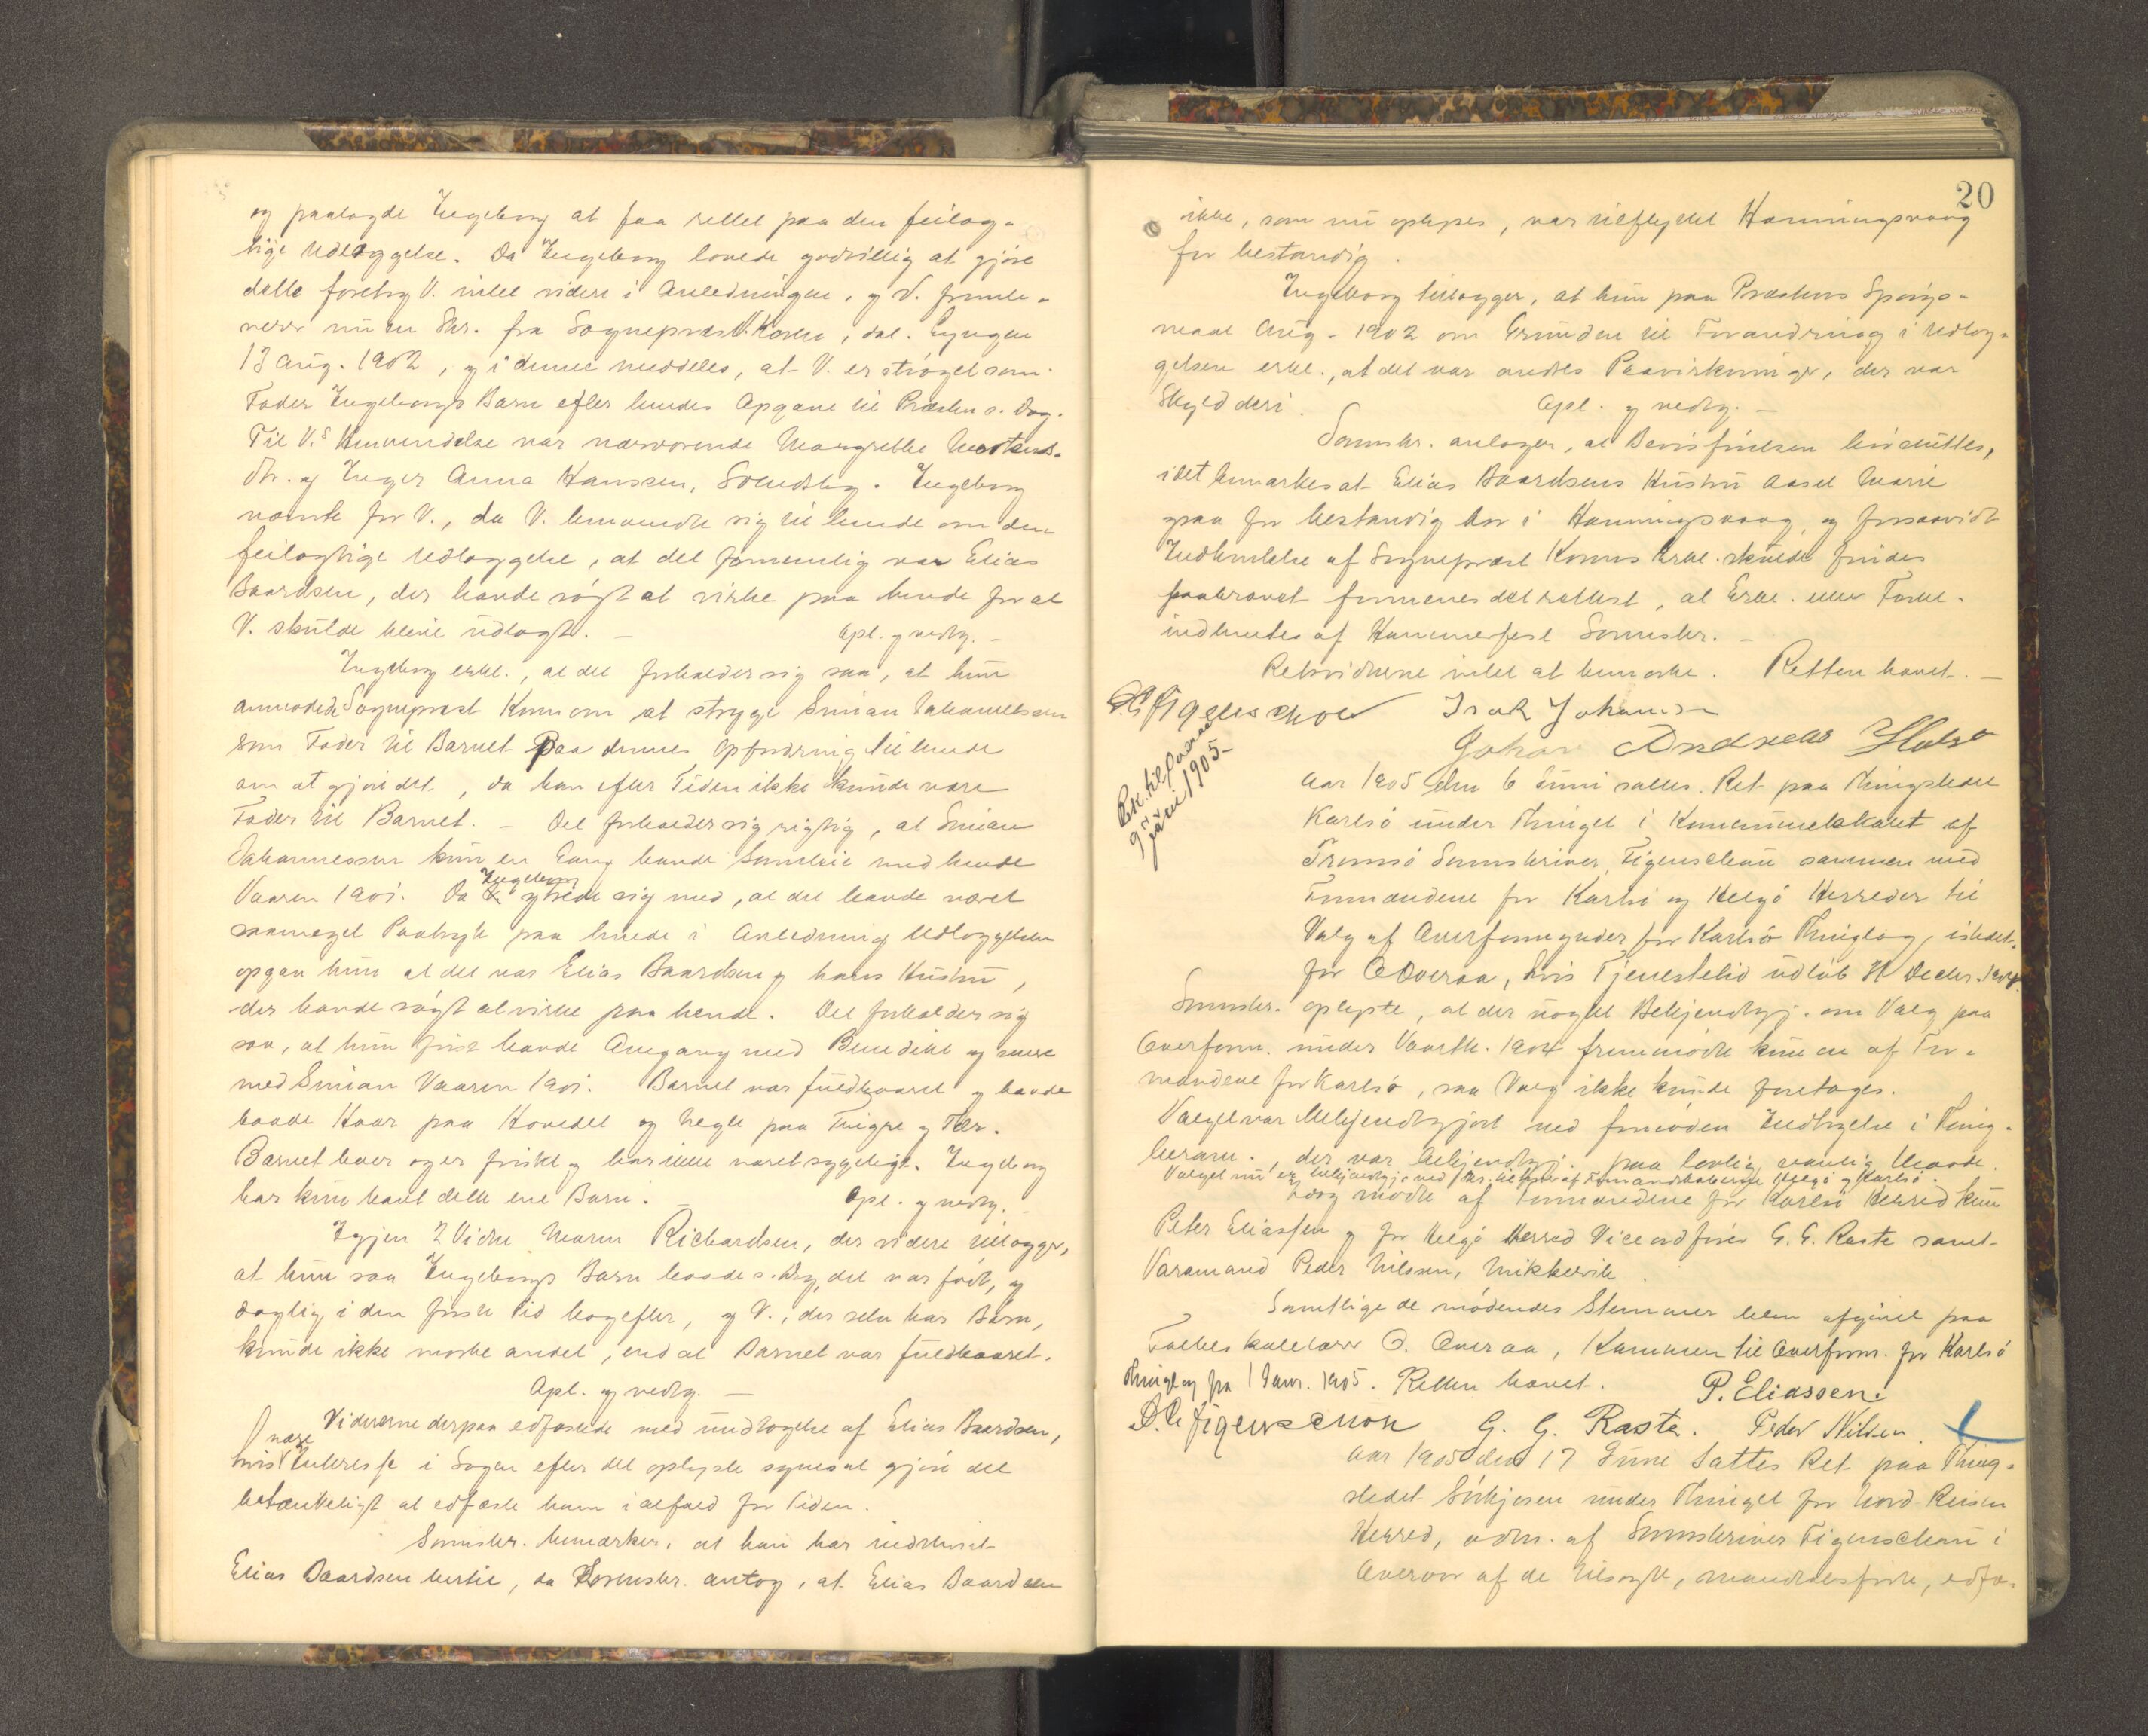 og paalagde Ingeborg at faa rettet paa den feilag-
tige Udlæggelse. Da Ingeborg lovede godvillig at gjøre
dette foretog V. intet videre i Anledningen, og V. fremle-
verer nu en Skr. fra Sogneprest Koren, dat. Lyngen
13 Aug. 1902, og i denne meddeles, at V. er strøget som
Fader Ingeborgs Barn efter hendes Opgave til Præsten s. Dag.
Til V.s Henvendelse var nærværende Margrethe Mortens-
dtr. og Inger Anna Hanssen, Svendsby. Ingeborg
nævnte for V., da V. henvendte sig til hende om den
feilagtige Udlæggelse, at det fornemlig var Elias
Baardsen, der havde søgt at virke paa hende for at
V. skulde blive udlagt. – Opl. og vedtg. –
Ingeborg erkl., at det forholder sig saa, at hun
anmodede Sogneprest Koren om at stryge Simian Johannessen
som Fader til Barnet paa dennes Opfordring til hende
om at gjøre det, da han efter Tiden ikke kunde være
Fader til Barnet. – Det forholder sig rigtig, at Simian
Johannessen kun en Gang havde Samleie med hende
Vaaren 1901. Da Ingeborg ytrede sig med, at det havde været
saameget Paatryk paa hende i Anledning Udlæggelsen
opgav hun at det var Elias Baardsen og hans Hustru,
der havde søgt at virke paa hende. Det forholder sig
saa, at hun først havde Omgang med Benedikt og senere
med Simian Vaaren 1901. Barnet var fuldbaaret og havde
baade Haar paa Hovedet og Negle paa Fingre og Tær.
Barnet lever og er friskt og har ikke været sygeligt. Ingeborg
har kun havt dette ene Barn. Opl. og vedtg. –
Igjen 2 Vidne Maren Richardsen, der videre tillægger,
at hun saa Ingeborgs Barn baade s. Dag, det var født, og
daglig i den første Tid bagefter, og V., der selv har Børn,
kunde ikke mærke andet, end at Barnet var fuldbaaret.
Opl. og vedtg. –
Vidnerne derpaa edfæstede med undtagelse af Elias Baardsen,
hvis nære Interesse i Sagen efter det oplyste synes at gjøre det
betænkeligt at edfæste ham i alfald for Tiden.
Sorenskr. bemærker, at han har indkaldt
Elias Baardsen hertil, da Sorenskr. antog, at Elias Baardsen
20
ikke, som nu oplyses, var tilflyttet Honningsvaag
for bestandig.
Ingeborg tillægger, at hun paa Præstens Spørgs-
maal Aug. 1902 om Grunden til Forandring i Udlæg-
gelsen erkl., at det var andres Paavirkninger, der var
Skyld deri. Opl. og vedtg. –
Sorenskr. antager, at Bevisførelsen her sluttes,
idet bemærkes at Elias Baardsens Hustru Aasel Marie
ogsaa for bestandig bor i Honningsvaag, og forsaavidt
Indhentelse af Sogneprest Korens Erkl. skulde findes
paakrævet formenes det rettest, at Erkl. eller Forkl.
indhentes af Hammerfest Sorenskr. –
Retsvidnerne intet at bemærke. Retten hævet. –
Figenschou Isak Johansen
Johan Andreas
9 juni 1905 –
Aar 1905 den 6 Juni sattes Ret paa Thingstedet
Karlsø under Thinget i Kommunelokalet af
Tromsø Sorenskriver Figenschou sammen med
Formændene for Karlsø og Helgø Herreder til
Valg af Overformynder for Karlsø Thinglag, istedet
for O Overaa, hvis Tjenestetid udløb 31 Decbr. 1904.
Sorenskr. oplyste, at der uagtet Bekjendtgj. om Valg paa
Overform. under Vaarth. 1904 fremmødte kun en af For-
mændene for Karlsø, saa Valg ikke kunde foretages.
Valget var bekjendtgjort ved fornøden Indtrykelse i Thing-
beram., der var bekjendtgj. paa lovlig vanlig Maade.
Valget nu er bekjendtgj. ved Skr. til begge af Formandskaberne Helgø og Karlsø.
Idag mødte af Formændene for Karlsø Herred kun
Peter Eliassen og for Helgø Herred Viceordfører G. G. Rasta samt
Varamand Peder Nilsen, Mikkelvik.
Samtlige de mødendes Stemmer blev afgivet paa
Folkeskolelærer O. Overaa, Kammen til Overform. for Karlsø
Thinglag fra 1 Janr. 1905. Retten hævet.
P. Eliassen.
Figenschou G. G. Rasta. Peder Nilsen.
Aar 1905 den 17 Juni sattes Ret paa Thing-
stedet Sørkjosen under Thinget for Nord Reisen
Herred, adm. af Sorenskriver Figenschou i
Overvær af de tilsagte, mandtalsførte, edfæ-